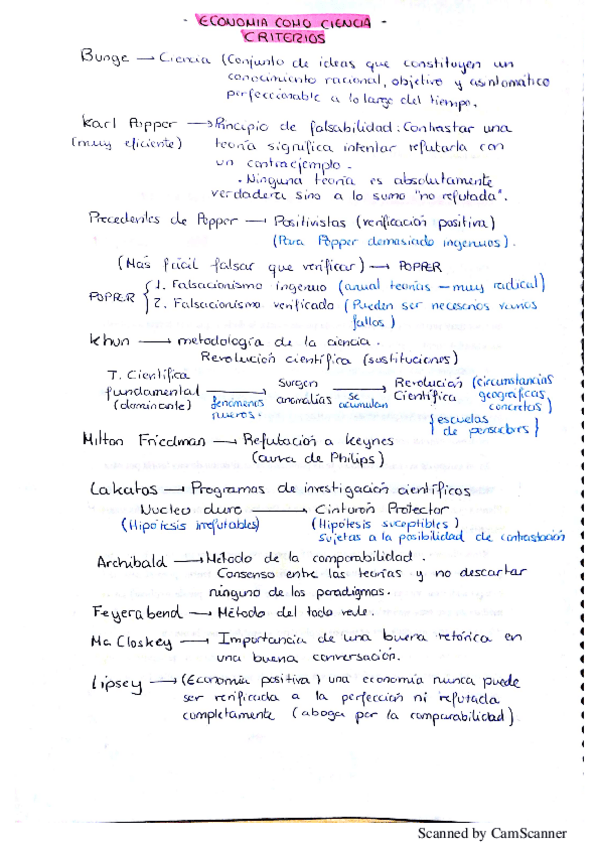 - ECONOMIA COMO CIENCIA -
CRITERIOS
Bunge → Ciencia (Conjunto de ideas que constituyen un
conocimiento racional, objetivo y asintomático
perfeccionable a lo largo del tiempo.
Karl Popper → Principio de falsabilidad: Contrastar una
(muy eficiente) teoría significa intentar refutarla con
un contraejemplo.
· Ninguna teoría es absolutamente
verdadera sino a lo sumo "no refutada".
Precedentes de Popper → Positivistas (verificación positiva)
(Para Popper demasiado ingenuos).
(Más fácil falsar que verificar) → POPPER
POPPER { 1. Falsacionismo ingenuo (anual teorías - muy radical)
2. Falsacionismo verificado (Pueden ser necesarios varios
fallos)
Khun → metodología de la ciencia.
Revolución científica (sustituciones)
T. Científica fundamental (dominante) → fenómenos nuevos. Surgen anomalías → se acumulan Revolución Científica (circunstancias geográficas concretas)
{escuelas de pensadores}
Milton Friedman → Refutación a Keynes
(curva de Philips)
Lakatos → Programas de investigación científicos
Nucleo duro → Cinturón Protector
(Hipótesis irrefutables) (Hipótesis suceptibles)
Sujetas a la posibilidad de contrastación
Archibald → Método de la comparabilidad.
Consenso entre las teorías y no descartar
ninguno de los paradigmas.
Feyerabend → Método del todo vale.
Mc. Closkey → Importancia de una buena retórica en
una buena conversación.
Lipsey → (Economía positiva) una economía nunca puede
ser verificada a la perfección ni refutada
completamente (aboga por la comparabilidad)
Scanned by CamScanner